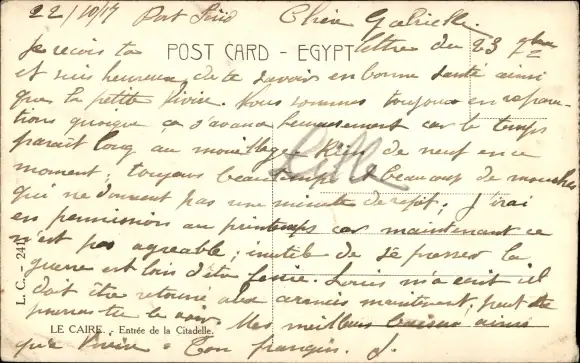 22/10/17 Port Saïd Chère Gabrielle.
Je reçois ta lettre du 23 7bre
POST CARD - EGYPT
et suis heureux de te savoir en bonne santé ainsi
que la petite Vivie. Nous sommes toujours en répara-
tions quoique ça s'avance heureusement car le temps
paraît long au mouillage. Rien de neuf en ce
moment; toujours beau temps & beaucoup de mouches
qui ne donnent pas une minute de répit; J'irai
en permission au printemps car maintenant ce
n'est pas agréable; inutile de se presser la
guerre est loin d'être finie. Louis m'a écrit il
doit être retourné aux maintenant, peut être
pourras tu le voir. Mes meilleurs baisers ainsi
qu'à Vivie = Ton frangin. J.
Lille
L. C. - 241
LE CAIRE. - Entrée de la Citadelle.